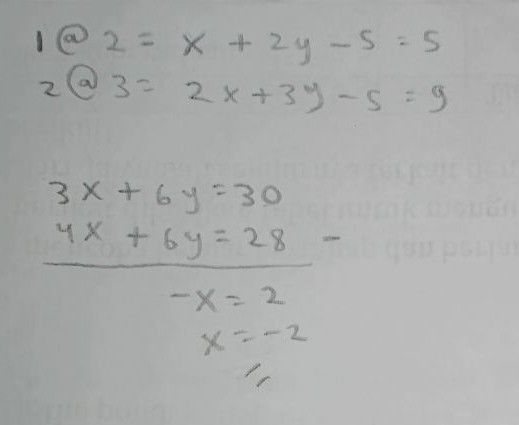 1 @ 2 = x + 2y - 5 = 5
2 @ 3 = 2x + 3y - 5 = 9
3x + 6y = 30
4x + 6y = 28 -
-x = 2
x = -2